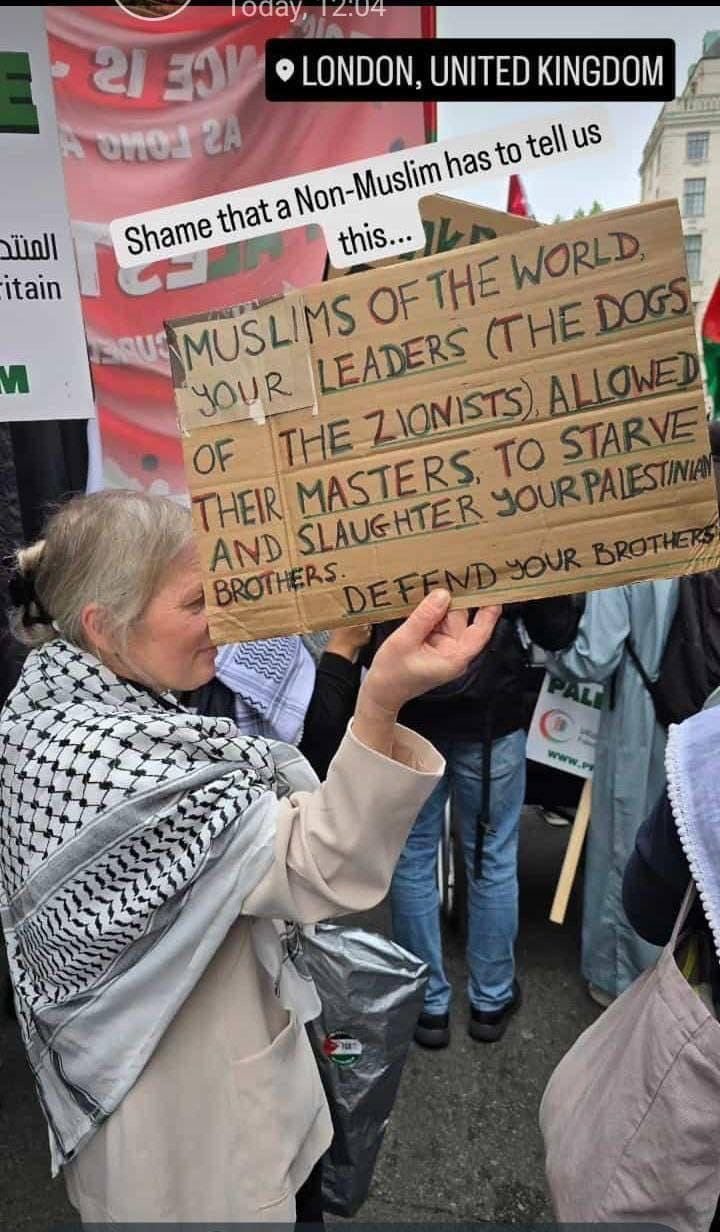 Today, 12:04
LONDON, UNITED KINGDOM
Shame that a Non-Muslim has to tell us
this...
MUSLIMS OF THE WORLD,
YOUR LEADERS (THE DOGS
OF THE ZIONISTS), ALLOWED
THEIR MASTERS, TO STARVE
AND SLAUGHTER YOUR PALESTINIAN
BROTHERS.
DEFEND YOUR BROTHERS
AS LONG A
المنتد
ritain
M
E
PAL